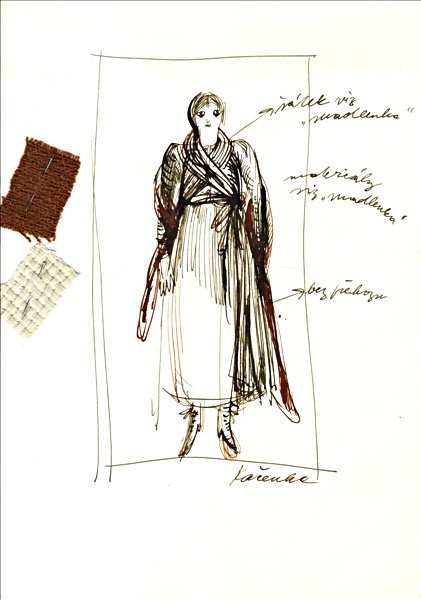 šátek viz
„Madlenka"
materiály
viz „Madlenka"
bez přehozu
Kačenka